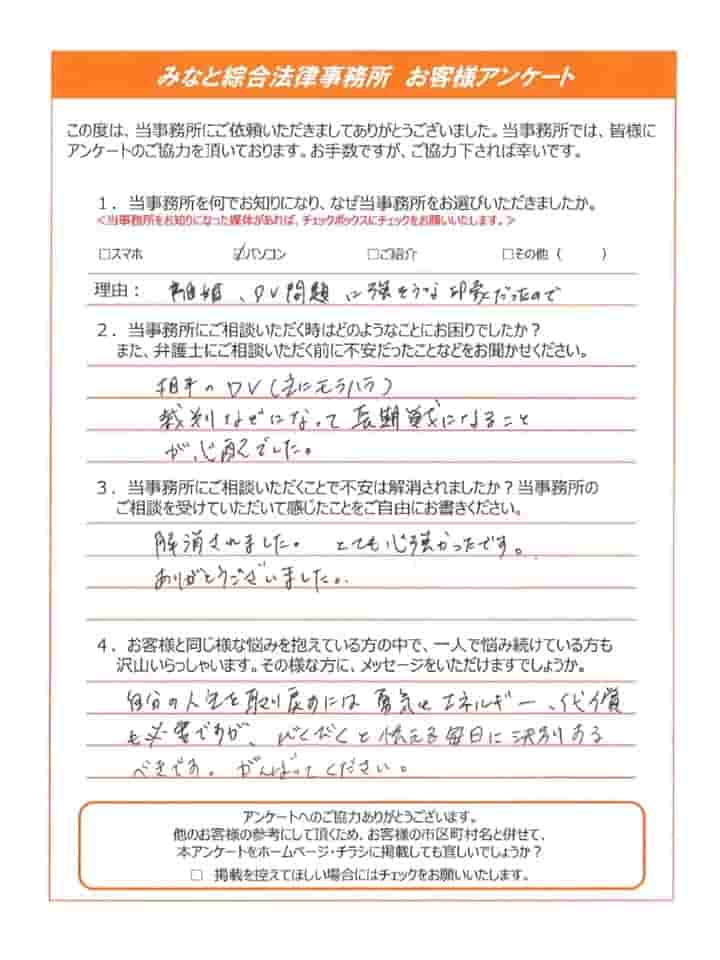 みなと綜合法律事務所 お客様アンケート
この度は、当事務所にご依頼いただきましてありがとうございました。当事務所では、皆様に
アンケートのご協力を頂いております。お手数ですが、ご協力下されば幸いです。
1．当事務所を何でお知りになり、なぜ当事務所をお選びいただきましたか。
＜当事務所をお知りになった媒体があれば、チェックボックスにチェックをお願いいたします。＞
□スマホ ☑パソコン □ご紹介 □その他（ ）
理由： 離婚、DV問題に強そうな印象だったので
2．当事務所にご相談いただく時はどのようなことにお困りでしたか？
また、弁護士にご相談いただく前に不安だったことなどをお聞かせください。
相手のDV（主にモラハラ）
裁判なぜになって長期戦になること
が心配でした。
3．当事務所にご相談いただくことで不安は解消されましたか？当事務所の
ご相談を受けていただいて感じたことをご自由にお書きください。
解消されました。 とても心強かったです。
ありがとうございました。
4．お客様と同じ様な悩みを抱えている方の中で、一人で悩み続けている方も
沢山いらっしゃいます。その様な方に、メッセージをいただけますでしょうか。
自分の人生を取り戻すには勇気とエネルギー、代償
も必要ですが、びくびくと怯える毎日に決別する
べきです。がんばってください。
アンケートへのご協力ありがとうございます。
他のお客様の参考にして頂くため、お客様の市区町村名と併せて、
本アンケートをホームページ・チラシに掲載しても宜しいでしょうか？
□ 掲載を控えてほしい場合にはチェックをお願いいたします。